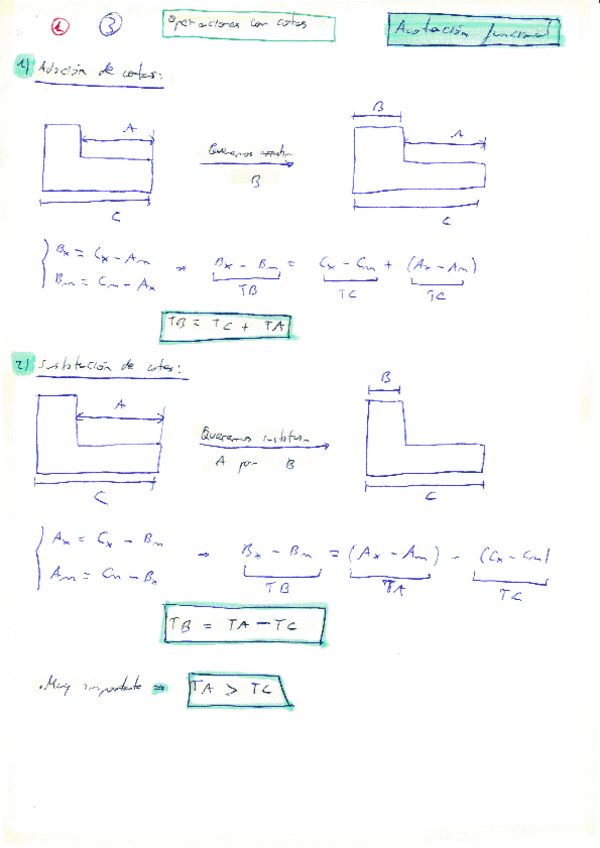 1 3 Operaciones con cotas Acotación funcional
1) Adición de cotas:
B
A A
Queremos
B
C C
Bx = Cx - Am
Bm = Cm - Ax
⇒ Bx - Bm = Cx - Cm + (Ax - Am)
TB TC TC
TB = TC + TA
2) Sustitución de cotas:
B
A
Queremos sustituir
A por B
C C
Ax = Cx - Bm
Am = Cm - Bx
⇒ Bx - Bm = (Ax - Am) - (Cx - Cm)
TB TA TC
TB = TA - TC
. Muy importante ⇒ TA > TC